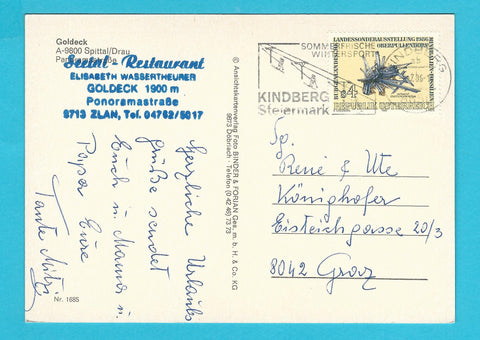 Goldeck
A-9800 Spittal/Drau
Panoramastraße
Seetal - Restaurant
ELISABETH WASSERTHEURER
GOLDECK 1900 m
Panoramastraße
9713 ZLAN, Tel. 04762/5017
Herzliche Urlaubs
grüße sendet
Euch u. Mama u.
Papa Eure
Tante Mitzi
Nr. 1685
© Ansichtskartenverlag Foto BINDER & FORIAN Ges. m. b. H. & Co. KG
9873 Döbriach - Telefon (0 42 46) 73 73
SOMMERFRISCHE
WINTERSPORT
KINDBERG
Steiermark
KINDBERG
LANDESSONDERAUSSTELLUNG 1986
OBERPULLENDORF
S 4
REPUBLIK ÖSTERREICH
Fa.
René & Ute
Könighofer
Eisteichgasse 20/3
8042 Graz